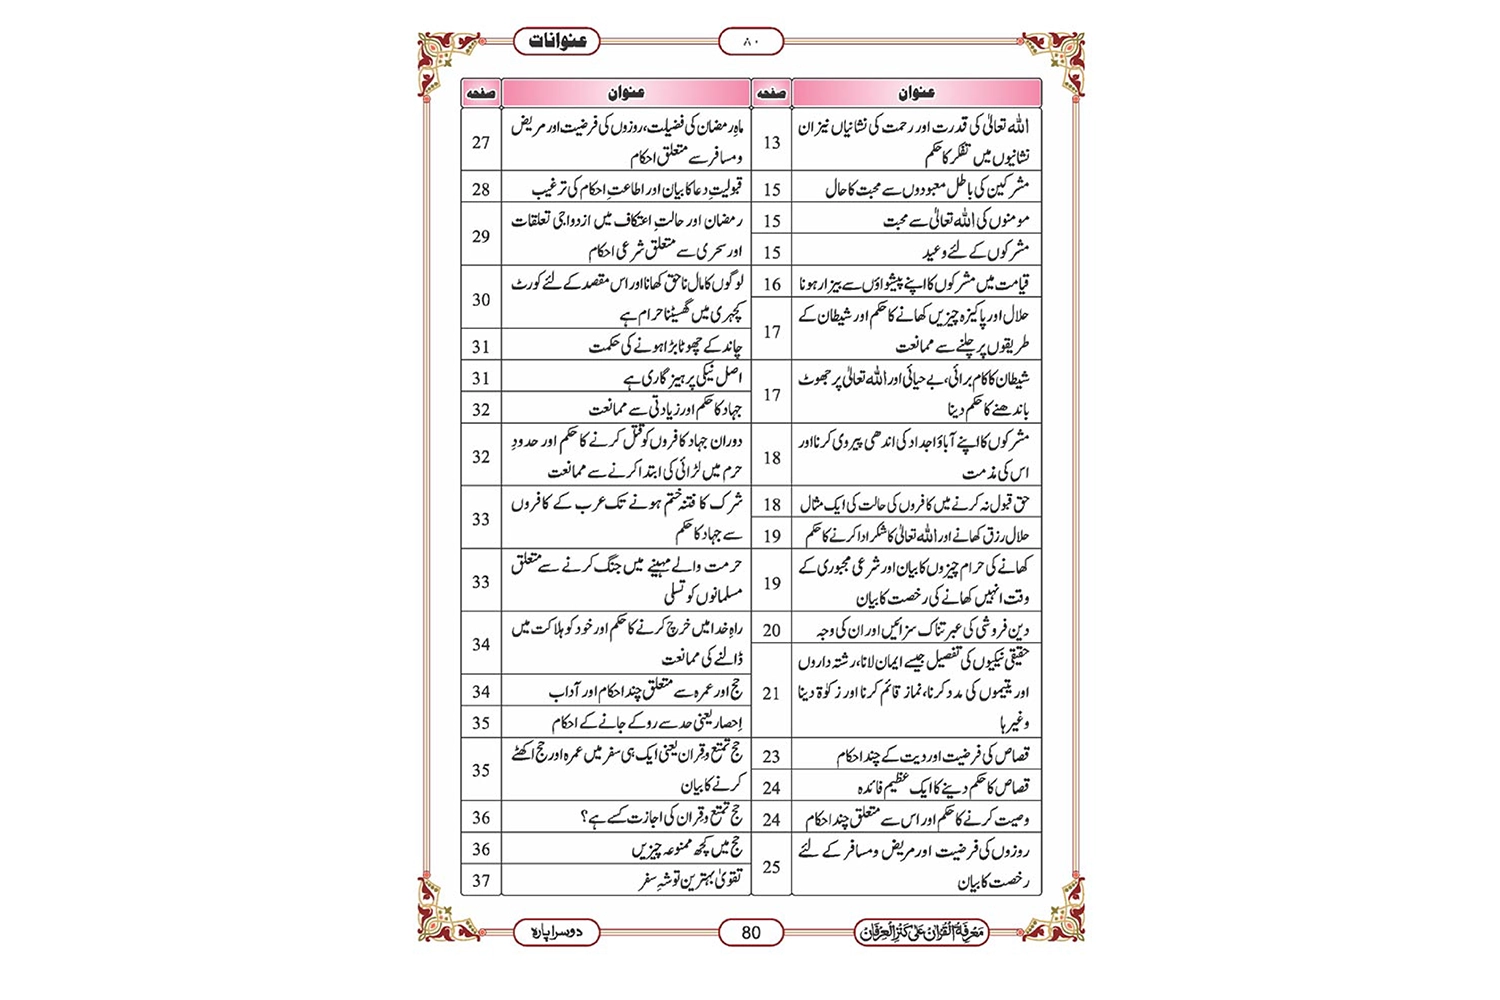 عنوانات
۸۰
عنوان
صفحہ
اللہ تعالیٰ کی قدرت اور رحمت کی نشانیاں نیز ان
نشانیوں میں تفکر کا حکم
13
مشرکین کی باطل معبودوں سے محبت کا حال
15
مومنوں کی اللہ تعالیٰ سے محبت
15
مشرکوں کے لئے وعید
15
قیامت میں مشرکوں کا اپنے پیشواؤں سے بیزار ہونا
16
حلال اور پاکیزہ چیزیں کھانے کا حکم اور شیطان کے
طریقوں پر چلنے سے ممانعت
17
شیطان کا کام برائی، بے حیائی اور اللہ تعالیٰ پر جھوٹ
باندھنے کا حکم دینا
17
مشرکوں کا اپنے آباؤ اجداد کی اندھی پیروی کرنا اور
اس کی مذمت
18
حق قبول نہ کرنے میں کافروں کی حالت کی ایک مثال
18
حلال رزق کھانے اور اللہ تعالیٰ کا شکر ادا کرنے کا حکم
19
کھانے کی حرام چیزوں کا بیان اور شرعی مجبوری کے
وقت انہیں کھانے کی رخصت کا بیان
19
دین فروشی کی عبرتناک سزائیں اور ان کی وجہ
20
حقیقی نیکیوں کی تفصیل جیسے ایمان لانا، رشتہ داروں
اور یتیموں کی مدد کرنا، نماز قائم کرنا اور زکوٰۃ دینا
وغیرہا
21
قصاص کی فرضیت اور دیت کے چند احکام
23
قصاص کا حکم دینے کا ایک عظیم فائدہ
24
وصیت کرنے کا حکم اور اس سے متعلق چند احکام
24
روزوں کی فرضیت اور مریض و مسافر کے لئے
رخصت کا بیان
25
عنوان
صفحہ
ماہِ رمضان کی فضیلت، روزوں کی فرضیت اور مریض
و مسافر سے متعلق احکام
27
قبولیتِ دعا کا بیان اور اطاعتِ احکام کی ترغیب
28
رمضان اور حالتِ اعتکاف میں ازدواجی تعلقات
اور سحری سے متعلق شرعی احکام
29
لوگوں کا مال ناحق کھانا اور اس مقصد کے لئے کورٹ
کچہری میں گھسیٹنا حرام ہے
30
چاند کے چھوٹا بڑا ہونے کی حکمت
31
اصل نیکی پرہیزگاری ہے
31
جہاد کا حکم اور زیادتی سے ممانعت
32
دوران جہاد کافروں کو قتل کرنے کا حکم اور حدودِ
حرم میں لڑائی کی ابتدا کرنے سے ممانعت
32
شرک کا فتنہ ختم ہونے تک عرب کے کافروں
سے جہاد کا حکم
33
حرمت والے مہینے میں جنگ کرنے سے متعلق
مسلمانوں کو تسلی
33
راہِ خدا میں خرچ کرنے کا حکم اور خود کو ہلاکت میں
ڈالنے کی ممانعت
34
حج اور عمرہ سے متعلق چند احکام اور آداب
34
اِحصار یعنی حد سے روکے جانے کے احکام
35
حج تمتع و قِران یعنی ایک ہی سفر میں عمرہ اور حج اکٹھے
کرنے کا بیان
35
حج تمتع و قِران کی اجازت کسے ہے؟
36
حج میں کچھ ممنوعہ چیزیں
36
تقویٰ بہترین توشہِ سفر
37
مَعْرِفَۃُ الْقُرْاٰن عَلٰی کَنْزِ الْعِرْفَان
80
دوسرا پارہ